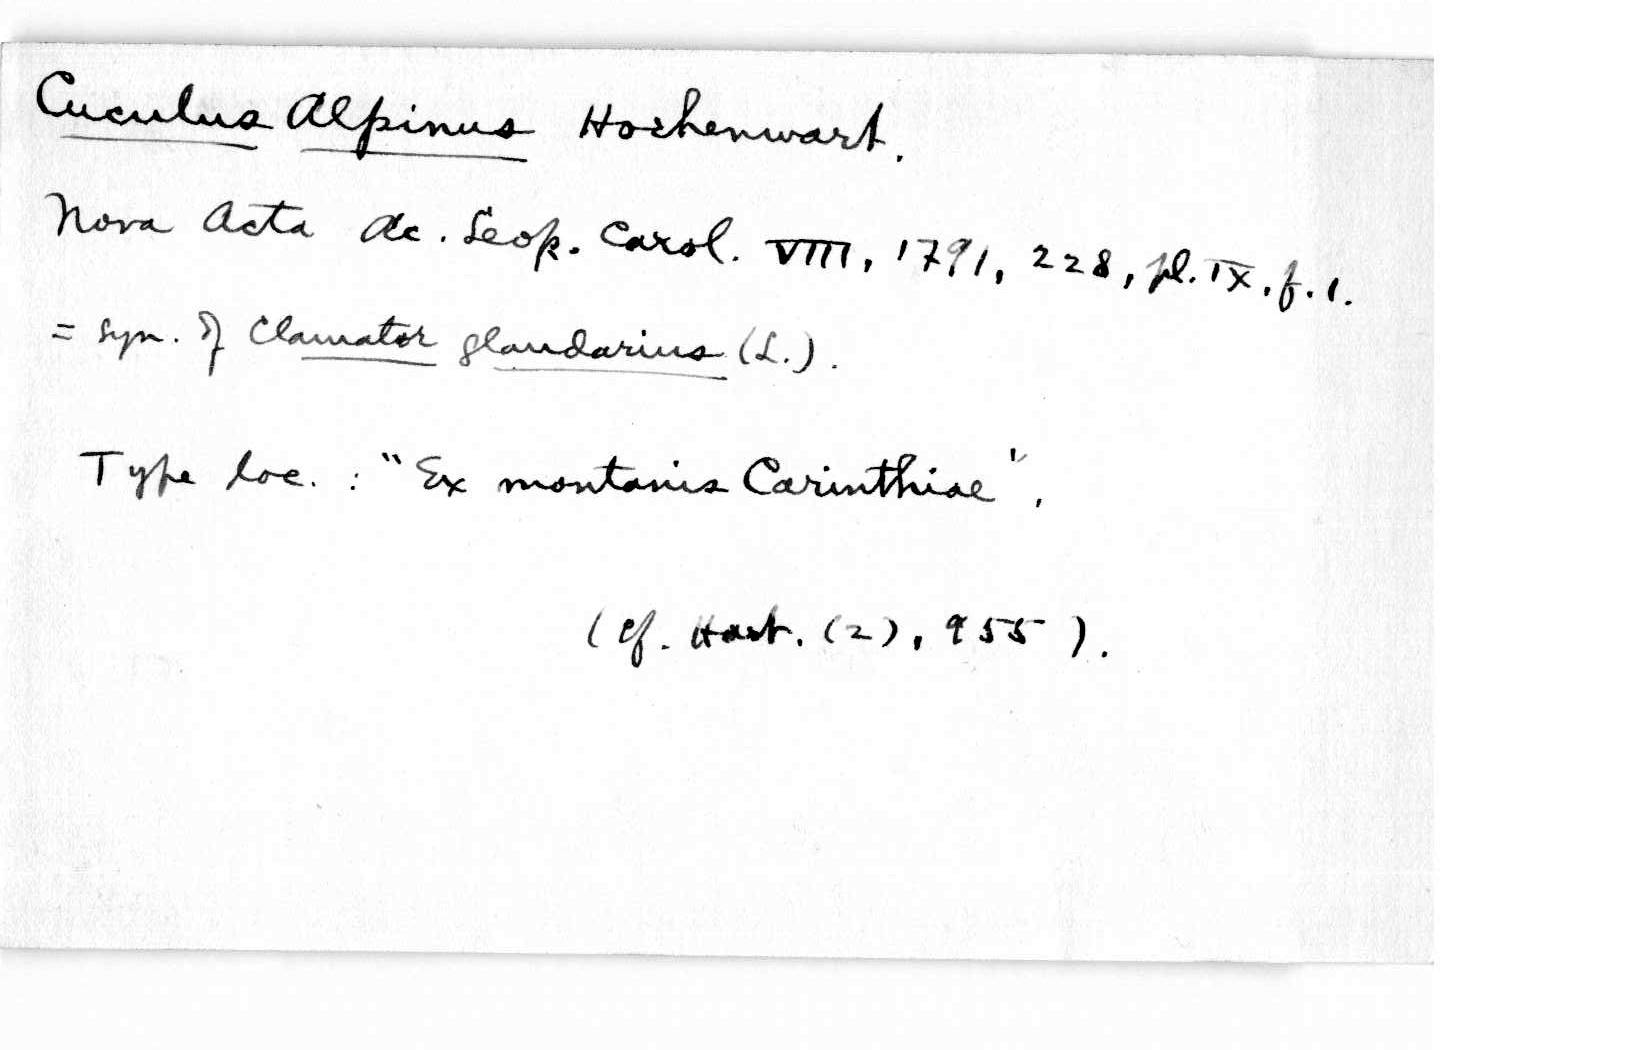 Cuculus Alpinus Hochenwart.
Nova Acta Ac. Leop. Carol. VIII, 1791, 228, pl. IX. f. 1.
= syn. of Clamator glandarius (L.).
Type loc. : "Ex montanis Carinthiae".
(cf. Hart. (2), 955).